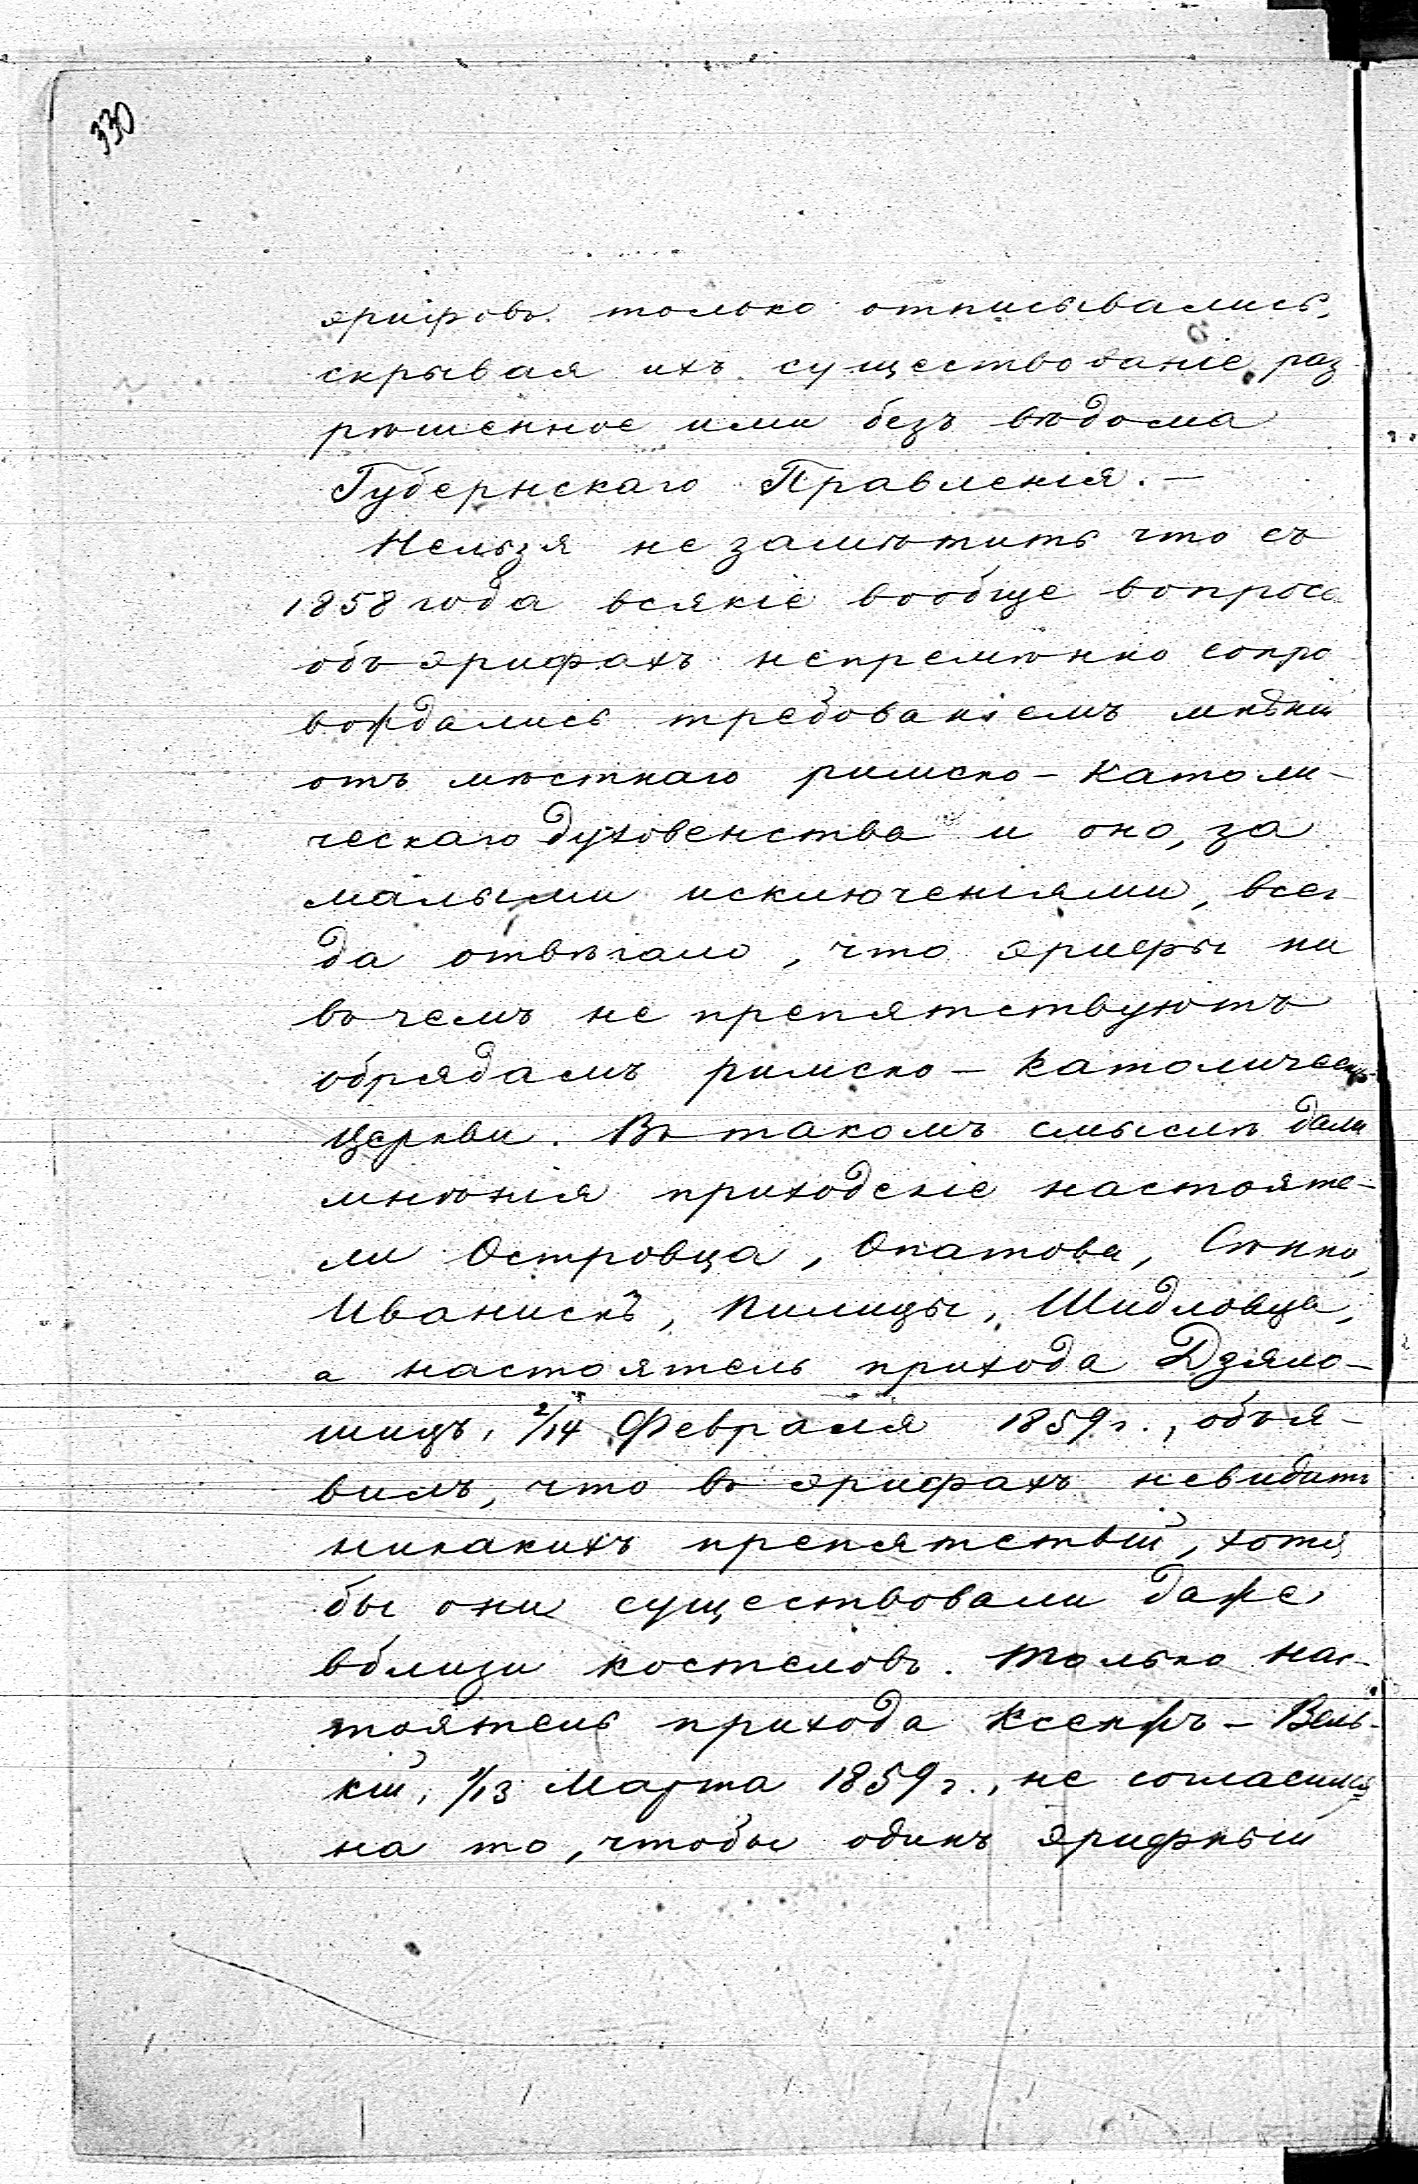 330
эрифовъ только отписывались,
скрывая ихъ существованіе, раз
рѣшенное ими безъ вѣдома
Губернскаго Правленія.—
Нельзя не замѣтить что съ
1858 года всякіе вообще вопросы
объ эрифахъ непремѣнно сопро
вождались требованіемъ мнѣнія
отъ мѣстнаго римско-католи-
ческаго духовенства и оно, за
малыми исключеніями, всег-
да отвѣчало, что эрифы ни
въ чемъ не препятствуютъ
обрядамъ римско-католической
Церкви. Въ такомъ смыслѣ дали
мнѣнія приходскіе настояте-
ли Островца, Опатова, Сѣнно,
Иванискъ, Пилицы, Шидловца,
а настоятель прихода Дзяло-
шицъ, 2/14 Февраля 1859 г., объя-
вилъ, что въ эрифахъ невидитъ
никакихъ препятствій, хотя
бы они существовали даже
вблизи костеловъ. Только нас-
тоятель прихода Ксенжъ-Вель-
кій, 1/13 Марта 1859 г., не согласился
на то, чтобы одинъ эрифный